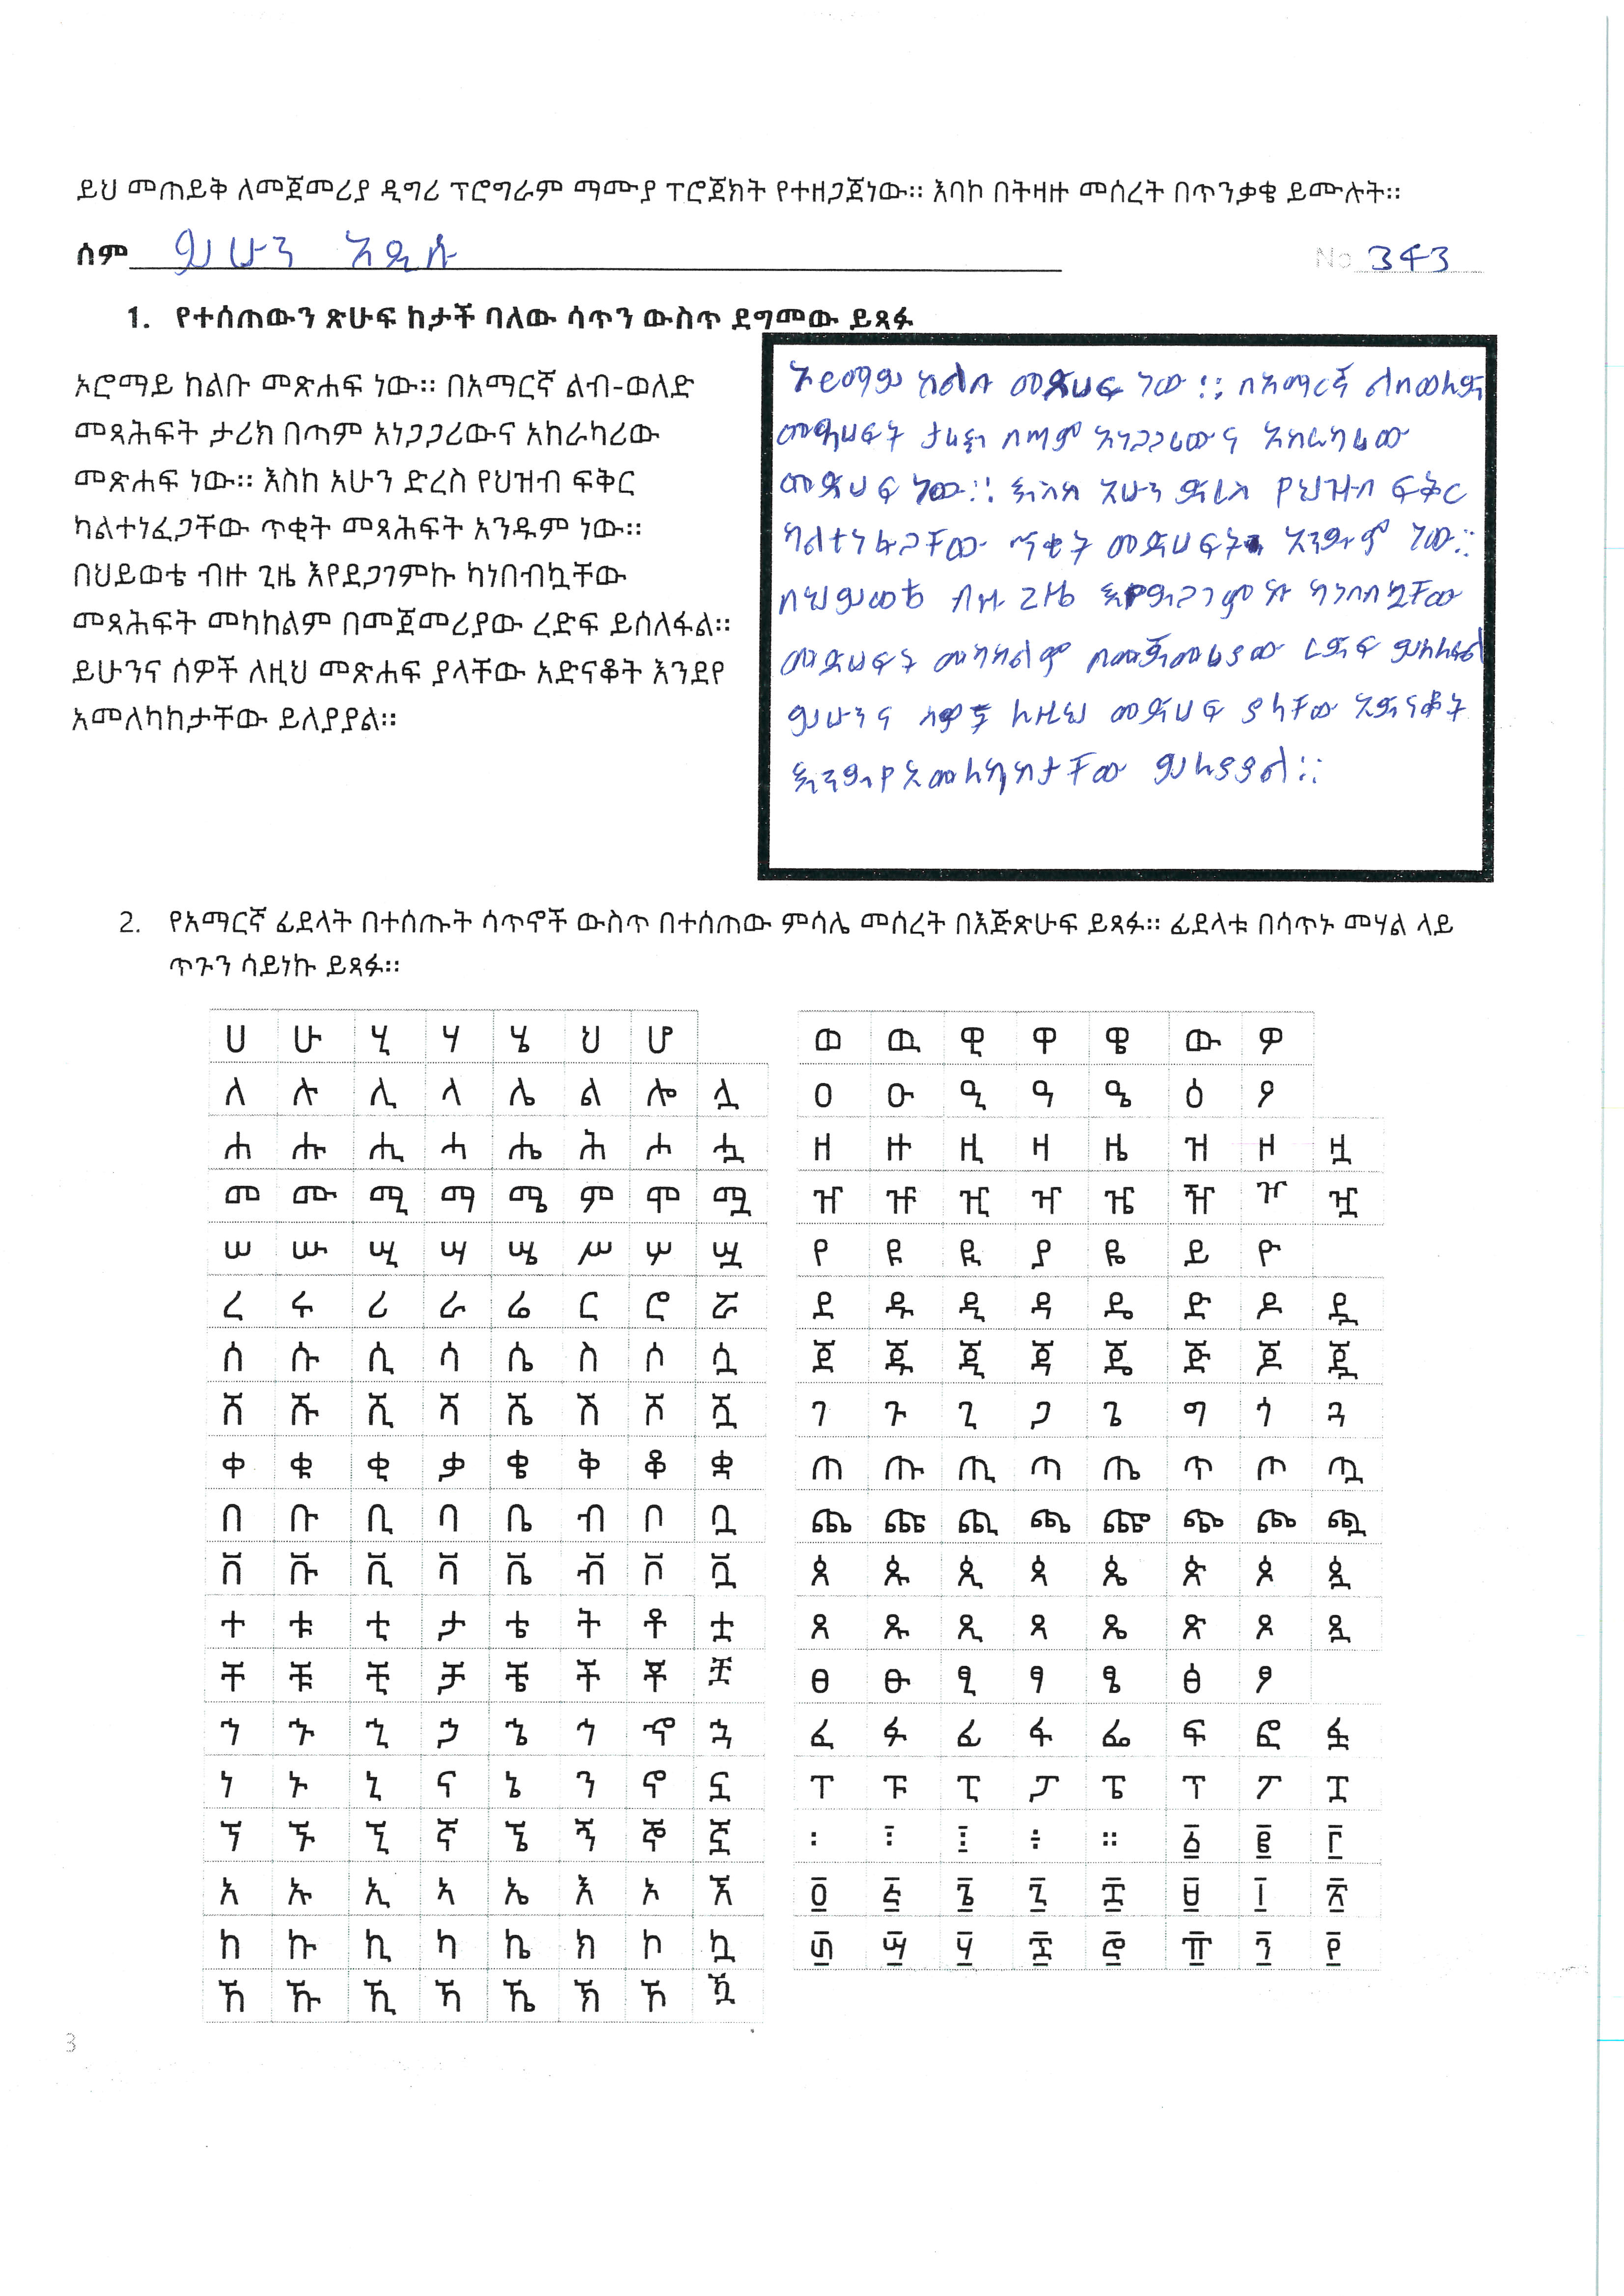 ይህ መጠይቅ ለመጀመሪያ ዲግሪ ፕሮግራም ማሙያ ፕሮጀክት የተዘጋጀነው። እባኮ በትዛዙ መሰረት በጥንቃቄ ይሙሉት።
ስም ይሁን አዲሱ No 343
1. የተሰጠውን ጽሁፍ ከታች ባለው ሳጥን ውስጥ ደግመው ይጻፉ
ኦሮማይ ከልቡ መጽሐፍ ነው። በአማርኛ ልብ-ወለድ
መጻሕፍት ታሪክ በጣም አነጋጋሪውና አከራካሪው
መጽሐፍ ነው። እስከ አሁን ድረስ የህዝብ ፍቅር
ካልተነፈጋቸው ጥቂት መጻሕፍት አንዱም ነው።
በህይወቴ ብዙ ጊዜ እየደጋገምኩ ካነበብኳቸው
መጻሕፍት መካከልም በመጀመሪያው ረድፍ ይሰለፋል።
ይሁንና ሰዎች ለዚህ መጽሐፍ ያላቸው አድናቆት እንደየ
አመለካከታቸው ይለያያል።
ኦሮማይ ከልቡ መጽሀፍ ነው። በአማርኛ ልብወለድ
መጻሀፍት ታሪክ በጣም አነጋጋሪውና አከራካሪው
መጽሀፍ ነው። እስከ አሁን ድረስ የህዝብ ፍቅር
ካልተነፈጋቸው ጥቂት መጽሀፍት አንዱም ነው።
በህይወቴ ብዙ ጊዜ እየደጋገምኩ ካነበብኳቸው
መጽሀፍት መካከልም በመጀመሪያው ረድፍ ይሰለፋል
ይሁንና ሰዎች ለዚህ መጽሀፍ ያላቸው አድናቆት
እንደየአመለካከታቸው ይለያያል።
2. የአማርኛ ፊደላት በተሰጡት ሳጥኖች ውስጥ በተሰጠው ምሳሌ መሰረት በእጅጽሁፍ ይጻፉ። ፊደላቱ በሳጥኑ መሃል ላይ
ጥጉን ሳይነኩ ይጻፉ።
ሀ ሁ ሂ ሃ ሄ ህ ሆ
ለ ሉ ሊ ላ ሌ ል ሎ ሏ
ሐ ሑ ሒ ሓ ሔ ሕ ሖ ሗ
መ ሙ ሚ ማ ሜ ም ሞ ሟ
ሠ ሡ ሢ ሣ ሤ ሥ ሦ ሧ
ረ ሩ ሪ ራ ሬ ር ሮ ሯ
ሰ ሱ ሲ ሳ ሴ ስ ሶ ሷ
ሸ ሹ ሺ ሻ ሼ ሽ ሾ ሿ
ቀ ቁ ቂ ቃ ቄ ቅ ቆ ቋ
በ ቡ ቢ ባ ቤ ብ ቦ ቧ
ቨ ቩ ቪ ቫ ቬ ቭ ቮ ቯ
ተ ቱ ቲ ታ ቴ ት ቶ ቷ
ቸ ቹ ቺ ቻ ቼ ች ቾ ቿ
ኀ ኁ ኂ ኃ ኄ ኅ ኆ ኋ
ነ ኑ ኒ ና ኔ ን ኖ ኗ
ኘ ኙ ኚ ኛ ኜ ኝ ኞ ኟ
አ ኡ ኢ ኣ ኤ እ ኦ ኧ
ከ ኩ ኪ ካ ኬ ክ ኮ ኳ
ኸ ኹ ኺ ኻ ኼ ኽ ኾ ዃ
ወ ዉ ዊ ዋ ዌ ው ዎ
ዐ ዑ ዒ ዓ ዔ ዕ ዖ
ዘ ዙ ዚ ዛ ዜ ዝ ዞ ዟ
ዠ ዡ ዢ ዣ ዤ ዥ ዦ ዧ
የ ዩ ዪ ያ ዬ ይ ዮ
ደ ዱ ዲ ዳ ዴ ድ ዶ ዷ
ጀ ጁ ጂ ጃ ጄ ጅ ጆ ጇ
ገ ጉ ጊ ጋ ጌ ግ ጎ ጓ
ጠ ጡ ጢ ጣ ጤ ጥ ጦ ጧ
ጨ ጩ ጪ ጫ ጬ ጭ ጮ ጯ
ጰ ጱ ጲ ጳ ጴ ጵ ጶ ጷ
ጸ ጹ ጺ ጻ ጼ ጽ ጾ ጿ
ፀ ፁ ፂ ፃ ፄ ፅ ፆ
ፈ ፉ ፊ ፋ ፌ ፍ ፎ ፏ
ፐ ፑ ፒ ፓ ፔ ፕ ፖ ፗ
፡ ፣ ፤ ፥ ። ፩ ፪ ፫
፬ ፭ ፮ ፯ ፰ ፱ ፲ ፳
፴ ፵ ፶ ፷ ፸ ፹ ፺ ፻
3